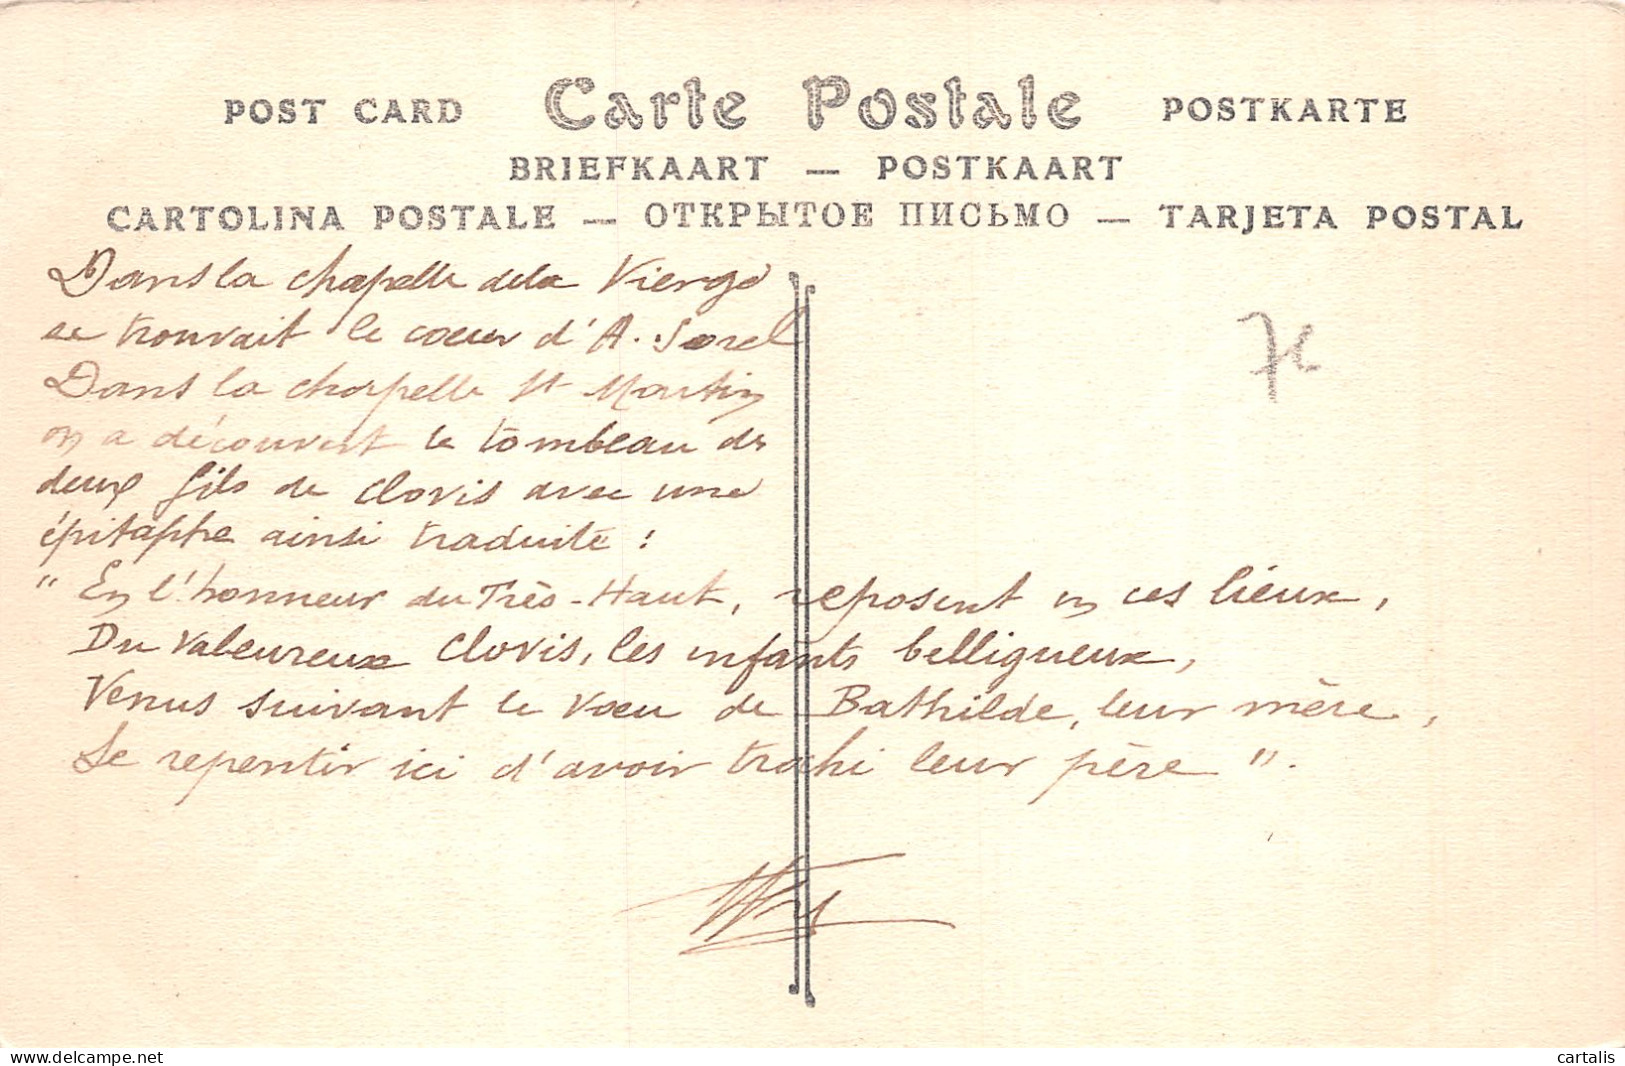 POST CARD Carte Postale POSTKARTE
BRIEFKAART — POSTKAART
CARTOLINA POSTALE — ОТКРЫТОЕ ПИСЬМО — TARJETA POSTAL
Dans la chapelle de la Vierge
se trouvait le cœur d'A. Sorel
Dans la chapelle St Martin
on a découvert le tombeau de
deux fils de Clovis avec une
épitaphe ainsi traduite :
" En l'honneur du Très-Haut, reposent en ces lieux,
Du valeureux Clovis, les enfants belliqueux,
Venus suivant le vœu de Bathilde, leur mère,
Se repentir ici d'avoir trahi leur père ".
cartalis